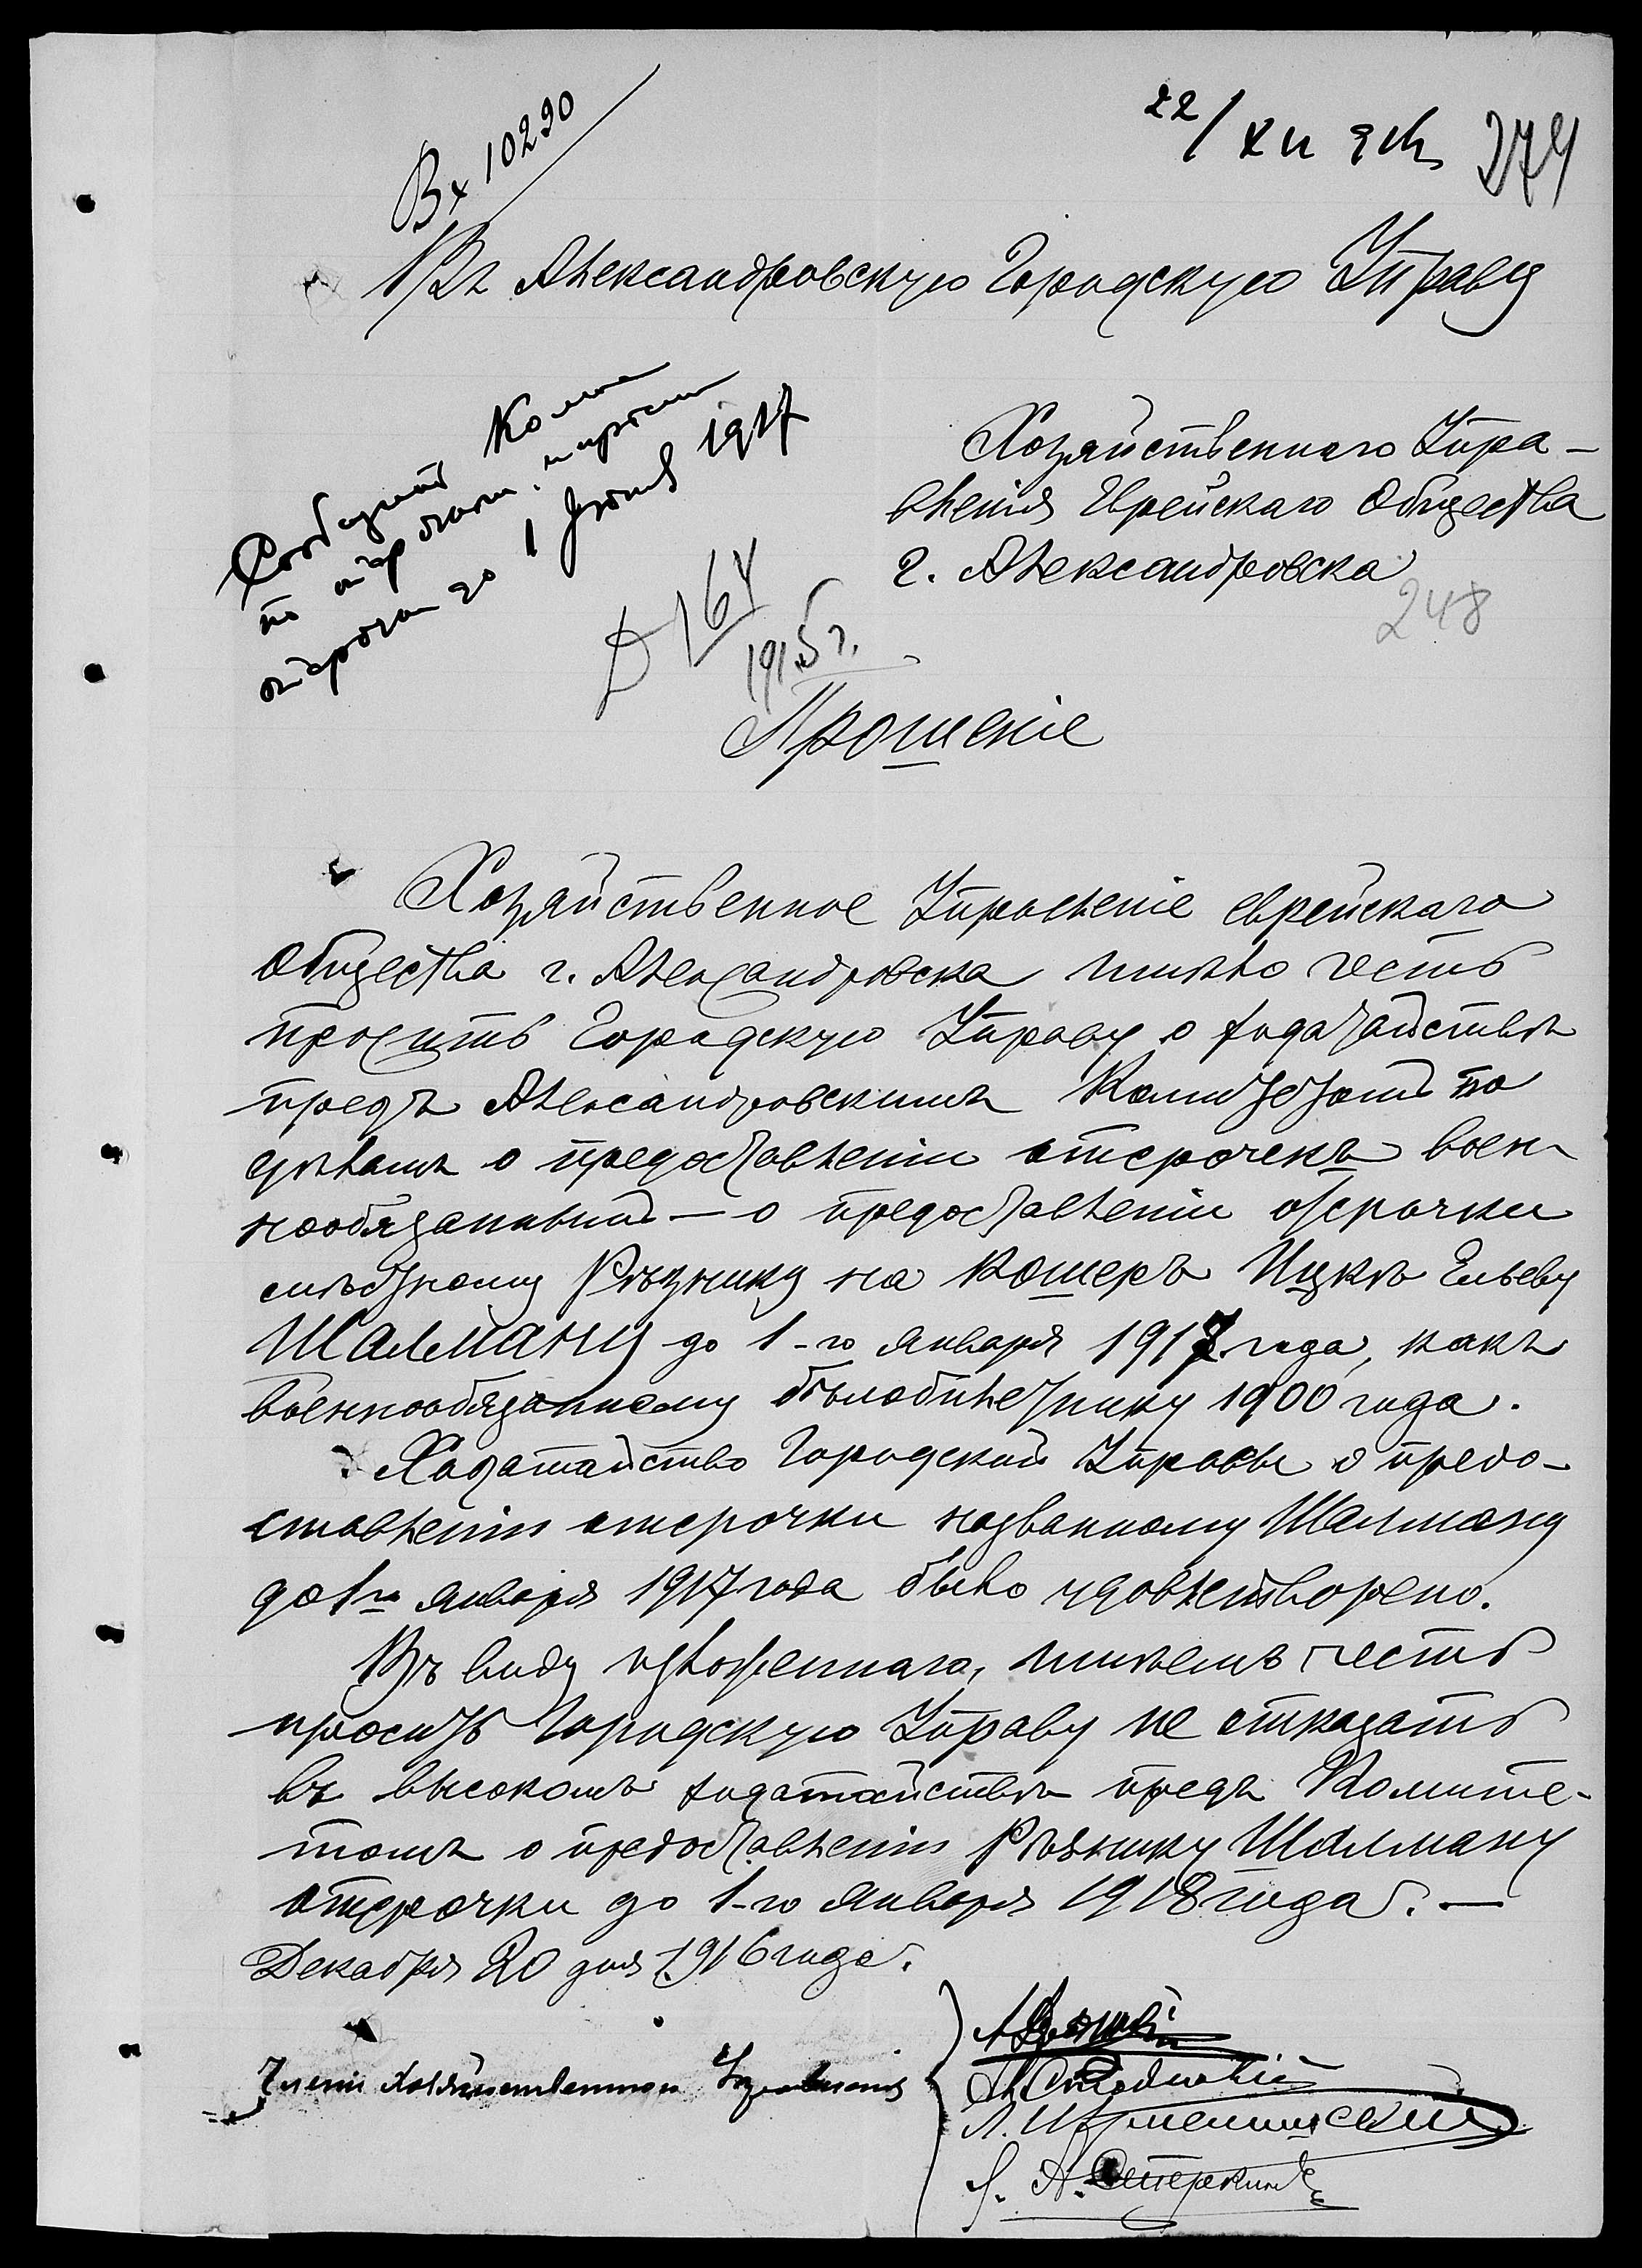 Вх 10290
22/XII
274
Въ Александровскую Городскую Управу
Сообщить
отсрочки до 1 1917
Хозяйственнаго Упра-
вленія Еврейскаго Общества
г. Александровска
248
Д 164
1915 г.
Прошеніе
Хозяйственное Управленіе еврейскаго
Общества г. Александровска имѣло честь
просить Городскую Управу о ходатайствѣ
предъ Александровскимъ Комитетомъ по
дѣламъ о предоставленіи отсрочекъ воен-
нообязаннымъ — о предоставленіи отсрочки
мѣстному Рѣзнику на кошеръ Ицкѣ Ельеву
Шалману до 1-го января 1917 года, какъ
военнообязанному бѣлобилетнику 1900 года.
Ходатайство Городской Управы о предо-
ставленіи отсрочки названному Шалману
до 1го января 1917 года было удовлетворено.
Въ виду изложеннаго, имѣемъ честь
просить Городскую Управу не отказать
въ высокомъ ходатайствѣ предъ Комите-
томъ о предоставленіи Рѣзнику Шалману
отсрочки до 1-го января 1918 года. —
Декабря 20 дня 1916 года.
Члены Хозяйственнаго Управленія